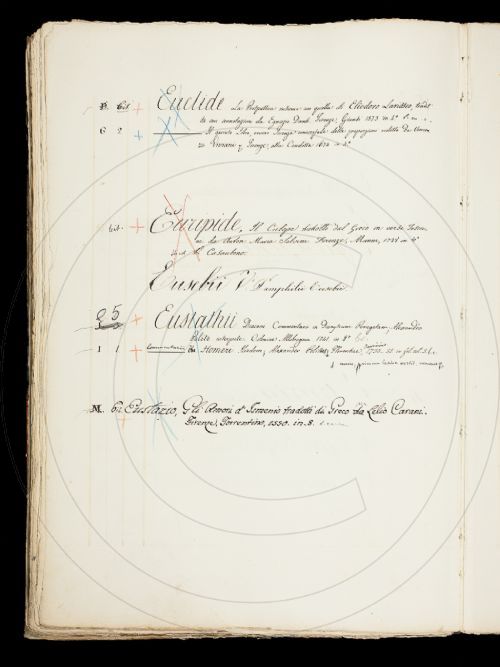 Euclide La Prospettiva insieme con quella di Eliodoro Larisseo, tradot
te con annotazioni da Egnazio Danti. Firenze, Giunti 1573 in 4°
6 2 Il quinto libro ovvero scienza universale delle proporzioni
zo Viviani Firenze, alla Condotta 1674 in 4°
Euripide, Il Ciclope tradotto dal Greco in verso Tosca
no da Anton Maria Salvini Firenze, 1728 in 4°
Casaubono.
Eusebii V. Pamphilii Eusebii
25 Eustathii Diaconi Commentarii in Dionysium Periegetam, Alexandro
Polito interprete. Coloniae Allobrogum 1741 in 8°
1 Commentarii in Homeri Alexander Politus Florentiae, 1730. in fol.
M. 62 Eustazio, Gli Amori d' Ismenio tradotti da Greco da Lelio Carani.
Firenze, Torrentino, 1550. in 8.